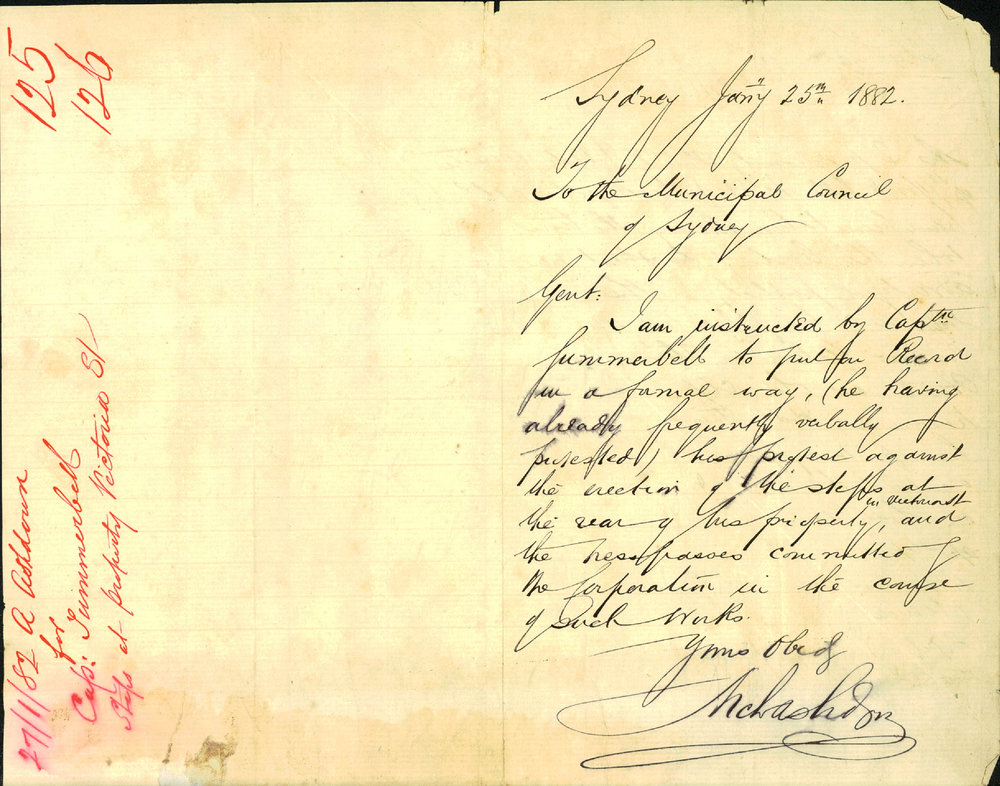 125
126
27/1/82 A Ashdown
for
Cap: Summerbell
Steps at property Victoria St
Sydney Jany 25th 1882.
To the Municipal Council
of Sydney
Gent:
I am instructed by Captn
Summerbell to put on Record
in a formal way, (he having
already frequently verbally
protested) his protest against
the erection of the steps at
the rear of his property, in Victoria St and
the trespasses committed by
the Corporation in the course
of such Works.
Yours Obedy